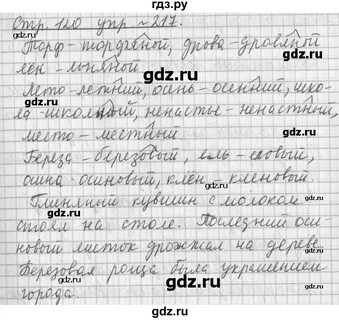 гдз.ру
Стр. 120 упр №217.
Торф-торфяной, дрова-дровяной
лён-льняной
Лето-летний, осень-осенний, шко-
ла-школьный, ненастье-ненастный,
место-местный
Береза-березовый, ель-еловый,
осина-осиновый, клён-кленовый.
Глиняный кувшин с молоком
стоял на столе. Последний оси
новый листок дрожжал на дереве.
Березовая роща была украшением
города.
гдз.ру